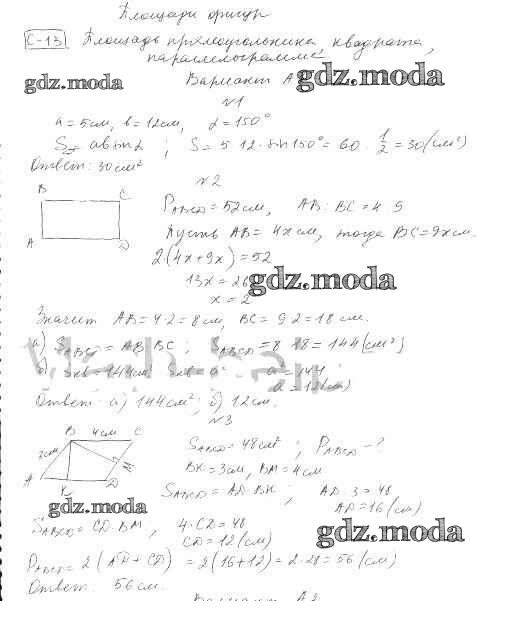 Площади фигур
С-13 Площадь прямоугольника, квадрата,
параллелограмма
gdz.moda
Вариант А
gdz.moda
№1
a = 5 см, b = 12 см, α = 150°
S = ab sin α ; S = 5 · 12 · sin 150° = 60 · 1/2 = 30 (см²)
Ответ: 30 см²
№2
B C
A D
P ABCD = 52 см, AB : BC = 4 : 9
Пусть AB = 4x см, тогда BC = 9x см.
2(4x + 9x) = 52
13x = 26
x = 2
gdz.moda
Значит AB = 4·2 = 8 см, BC = 9·2 = 18 см.
а) S ABCD = AB · BC ; S ABCD = 8 · 18 = 144 (см²)
б) Sкв = 144 см² Sкв = a² a² = 144
a = 12 (см)
Ответ: а) 144 см²; б) 12 см.
№3
B 4см C
A K D
S ABCD = 48 см² ; P ABCD - ?
BK = 3 см, BM = 4 см
S ABCD = AD · BK ; AD · 3 = 48
AD = 16 (см)
gdz.moda
S ABCD = CD · BM , 4 · CD = 48
CD = 12 (см)
gdz.moda
P ABCD = 2(AD + CD) = 2(16 + 12) = 2 · 28 = 56 (см)
Ответ: 56 см.